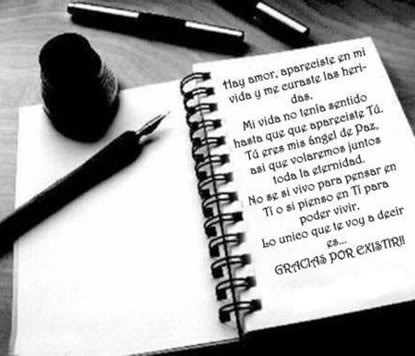 Hay amor, apareciste en mi
vida y me curaste las heri-
das.
Mi vida no tenía sentido
hasta que que apareciste Tú.
Tú eres mis ángel de Paz,
asi que volaremos juntos
toda la eternidad.
No se si vivo para pensar en
Ti o si pienso en Ti para
poder vivir.
Lo unico que te voy a decir
es...
GRACIAS POR EXISTIR!!